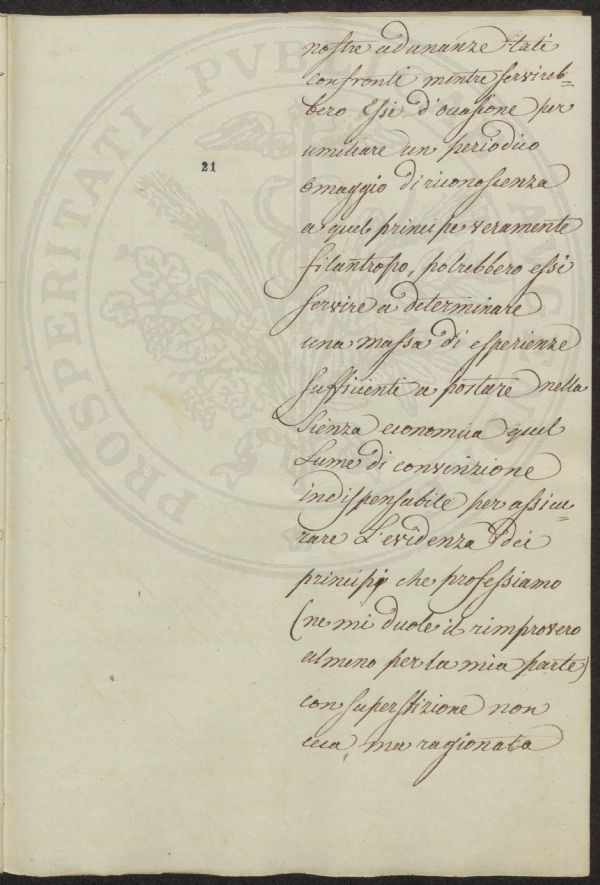 nostre adunanze stati
confronti mentre servireb=
bero Essi d'ocasione per
umiliare un periodico
21
Omaggio di riconoscenza
a quel principe veramente
filantropo, potrebbero essi
servire a determinare
una massa di esperienze
sufficienti a portare nella
Sienza economica quel
Lume di convinzione
indispensabile per assicu=
rare L'evidenza dei
principi che professiamo
(ne mi duole il rimprovero
almeno per la mia parte)
con superstizione non
ceca, ma ragionata
PROSPERITATI PUBLI